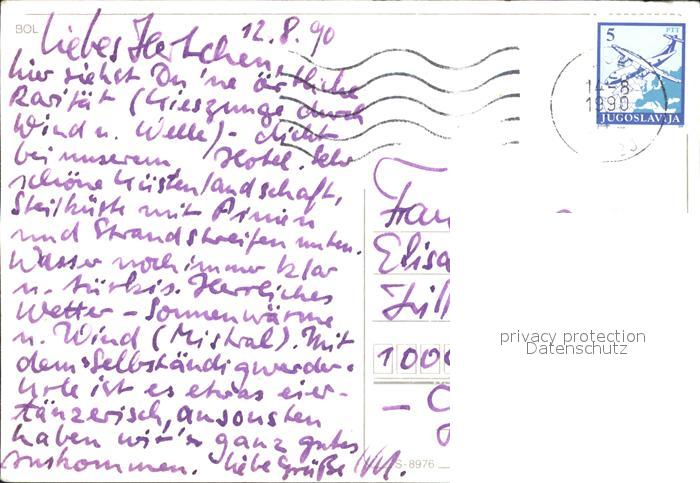 BOL
12.8.90
liebes Herzchen
hier siehst Du 'ne örtliche
Rarität (Kieszunge durch
Wind u. Welle) - dicht
bei unserem Hotel. Sehr
schöne Küstenlandschaft,
Steilküste mit Pinien
und Strandstreifen unten.
Wasser noch immer klar
u. türkis. Herrliches
Wetter - Sonnenwärme
u. Wind (Mistral). Mit
dem "Selbständigwerder"
ist es etwas eier-
tänzerisch, ansonsten
haben wir's ganz gutes
auskommen. Liebe Grüße M.
5
PTT
14-8
1990
JUGOSLAVIJA
Frau
Elisa
100
S-8976
privacy protection
Datenschutz